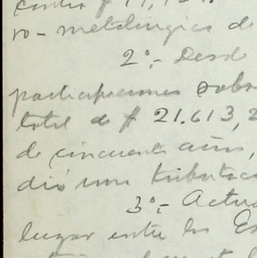 contra $ 11,
ro-metalúrgica de
2º.- Desd
participaciones sobr
total de $ 21.613,2
de cincuenta años,
dió una tributac
3º.- Actua
lugar entre los Es